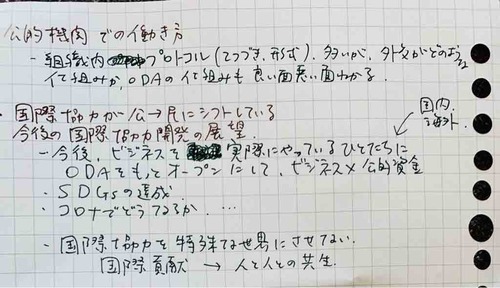 公的機関での働き方
- 組織内プロトコル(てつづき、形式)、多いが、外交がどのような
仕組みか、ODAの仕組みも良い面悪い面わかる。
・国際協力が公→民にシフトしている
今後の国際協力開発の展望
国内、海外
- 今後、ビジネスを実際にやっているひとたちに
ODAをもっとオープンにして、ビジネス×公的資金
- SDGsの達成
- コロナでどうなるか、…
・国際協力を特殊な世界にさせない
国際貢献 → 人と人との共生